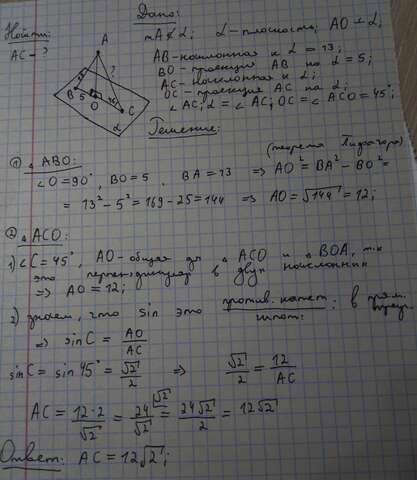 Найти:
AC - ?
Дано:
т.A ∉ α; α - плоскость; AO ⊥ α;
AB - наклонная к α = 13;
BO - проекция AB на α = 5;
AC - наклонная к α;
OC - проекция AC на α;
∠AC; α = ∠AC; OC = ∠ACO = 45°;
A
?
B 5 O C
α
Решение:
① △ABO: (теорема Пифагора)
∠O = 90°, BO = 5, BA = 13 ⇒ AO² = BA² - BO² =
= 13² - 5² = 169 - 25 = 144 ⇒ AO = √144 = 12;
② △ACO:
1) ∠C = 45°, AO - общая для △ACO и △BOA, т.к
это перпендикуляр в двух наклонных
⇒ AO = 12;
2) знаем, что sin это против. катет : в прям. треуг.
гипот:
⇒ sin C = AO/AC
sin C = sin 45° = √2/2 ⇒ √2/2 = 12/AC
AC = 12·2/√2 = 24/√2 (√2 = 24√2/2 = 12√2
Ответ: AC = 12√2;